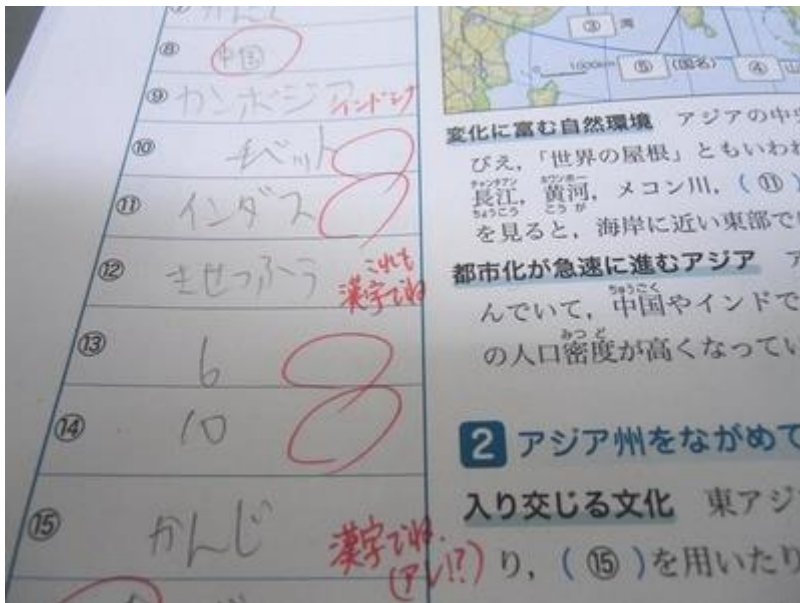 ⑧ 中国
⑨ カンボジア インドシナ
⑩ チベット
⑪ インダス
⑫ きせつふう これも
漢字でね
⑬ 6
⑭ 10
⑮ かんじ 漢字でね.
(アレ!?)
③ 湾
0 1000km ⑤ (国名) ④ 山
変化に富む自然環境 アジアの中央
びえ,「世界の屋根」ともいわれ
長江, 黄河, メコン川, ( ⑪ )
チャンチアン ホワンホー
ちょうこう こうが
を見ると, 海岸に近い東部で
都市化が急速に進むアジア ア
んでいて, 中国やインドで
ちゅうごく
の人口密度が高くなってい
みつど
2 アジア州をながめて
入り交じる文化 東アジ
り, ( ⑮ )を用いたり